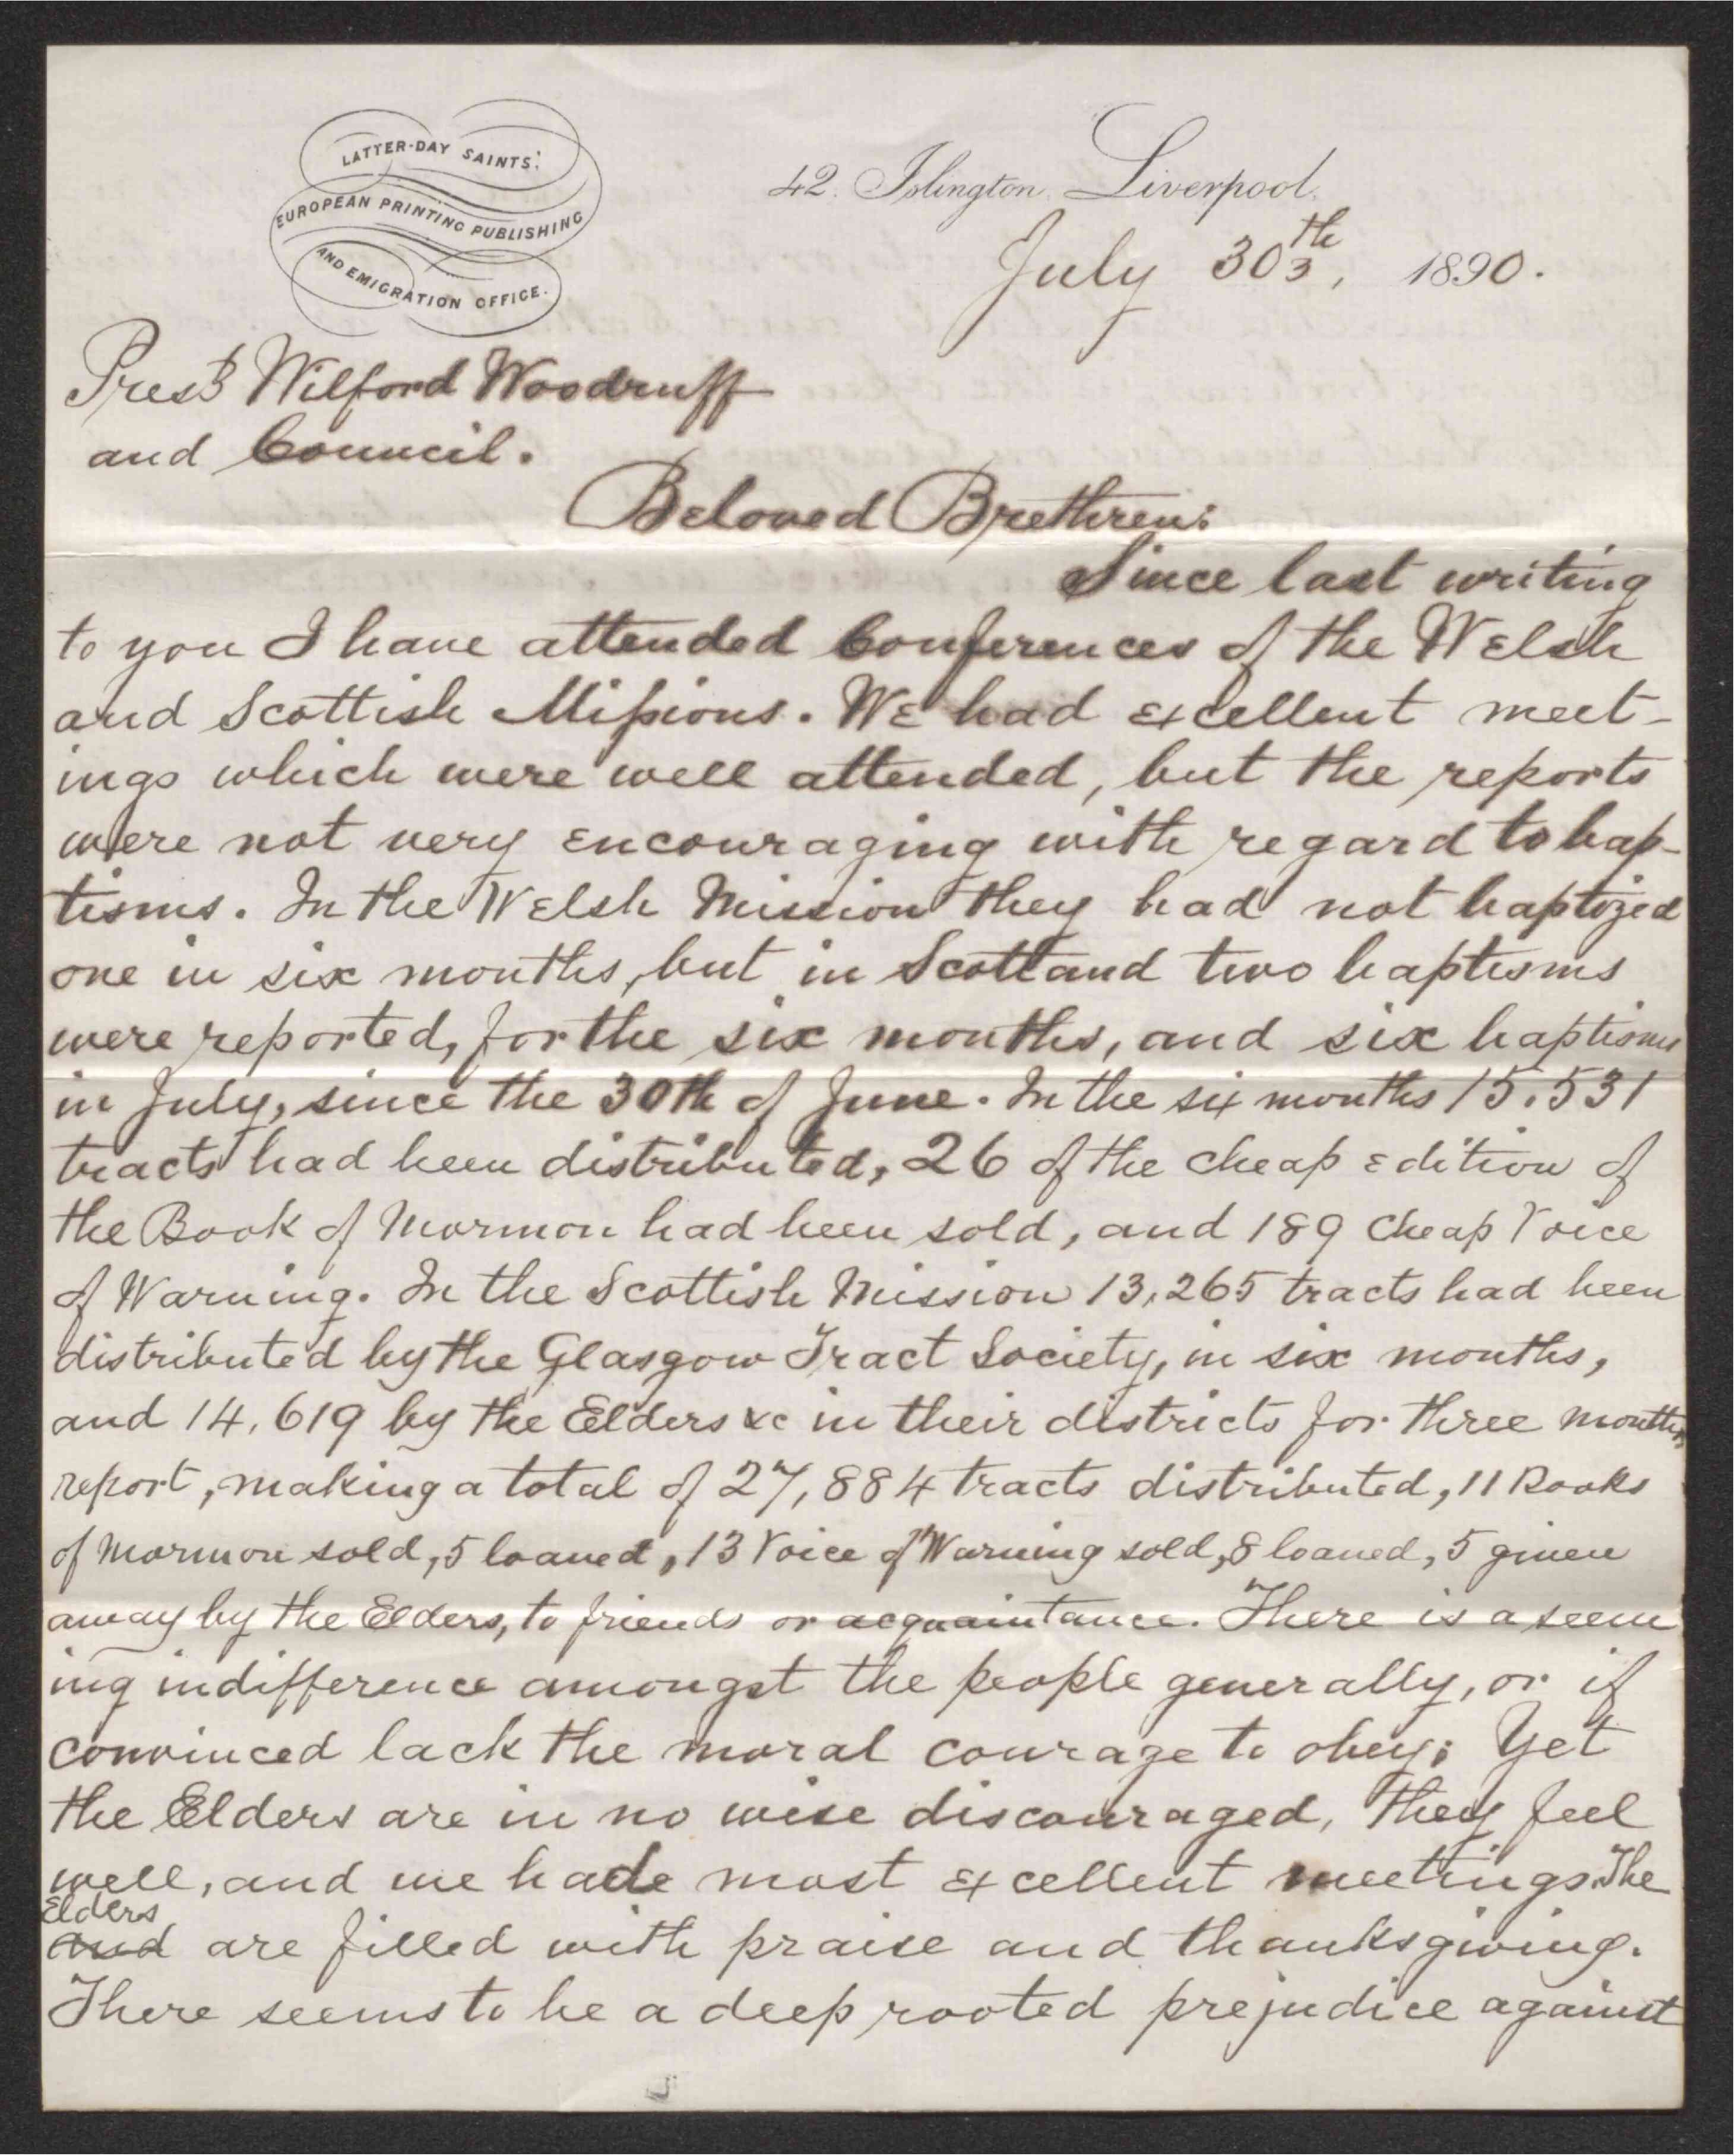 LATTER-DAY SAINTS'
EUROPEAN PRINTING PUBLISHING
AND EMIGRATION OFFICE.
42. Islington. Liverpool.
July 30th, 1890.
Prest Wilford Woodruff
and Council.
Beloved Brethren:
Since last writing
to you I have attended Conferences of the Welsh
and Scottish Missions. We had excellent meet-
ings which were well attended, but the reports
were not very encouraging with regard to bap-
tisms. In the Welsh Mission they had not baptized
one in six months, but in Scotland two baptisms
were reported, for the six months, and six baptisms
in July, since the 30th of June. In the six months 15.531
tracts had been distributed, 26 of the cheap edition of
the Book of Mormon had been sold, and 189 cheap Voice
of Warning. In the Scottish Mission 13,265 tracts had been
distributed by the Glasgow Tract Society, in six months,
and 14,619 by the Elders &c in their districts for three months
report, making a total of 27,884 tracts distributed, 11 Books
of Mormon sold, 5 loaned, 13 Voice of Warning sold, 8 loaned, 5 given
away by the Elders, to friends or acquaintance. There is a seem
ing indifference amongst the people generally, or if
convinced lack the moral courage to obey; Yet
the Elders are in no wise discouraged, they feel
well, and we had most excellent meetings. The
Elders
and are filled with praise and thanksgiving.
There seems to be a deep rooted prejudice against